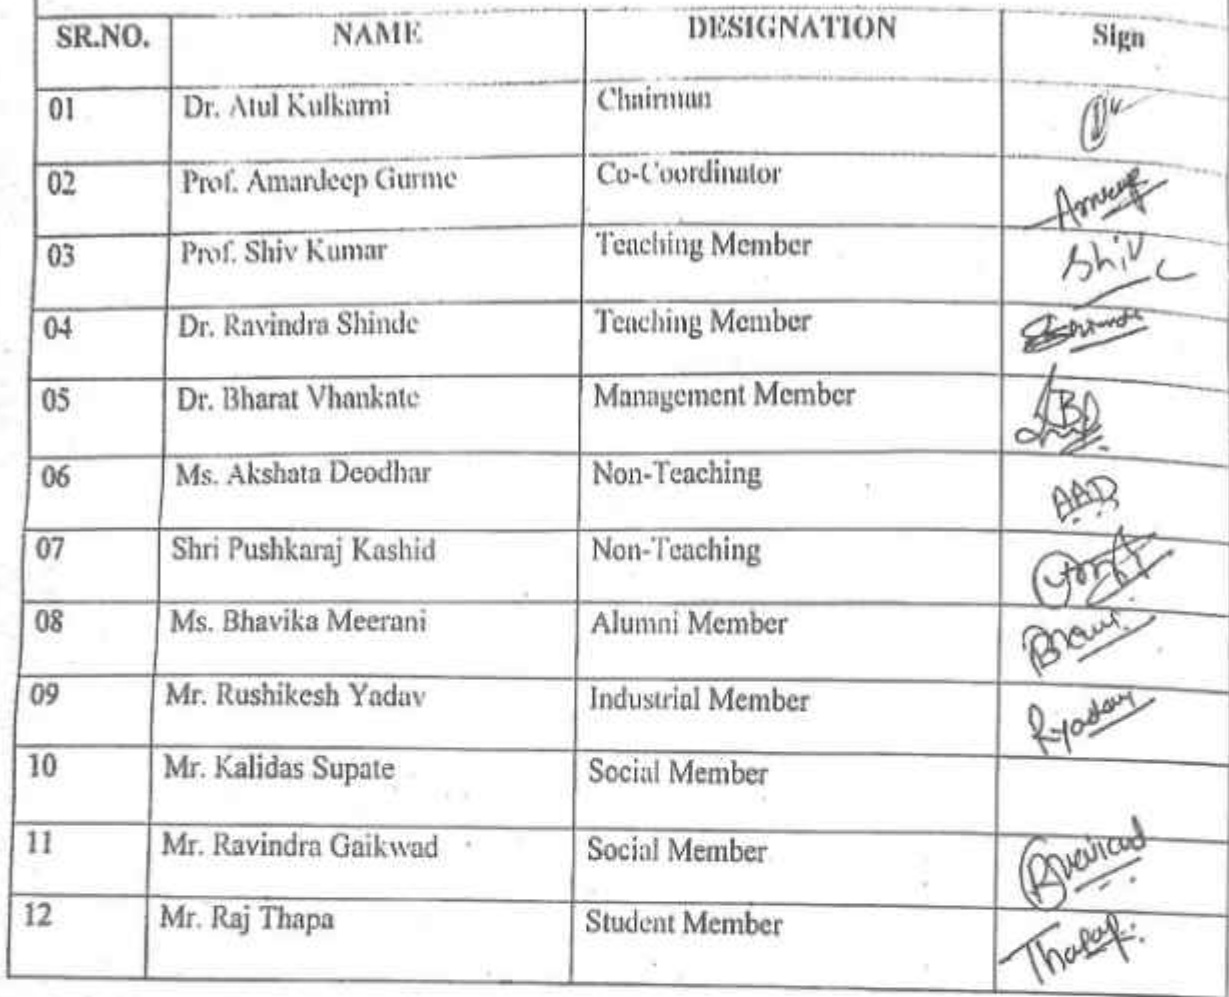 SR.NO. NAME DESIGNATION Sign
01 Dr. Atul Kulkarni Chairman
02 Prof. Amardeep Gurme Co-Coordinator
03 Prof. Shiv Kumar Teaching Member Shiv
04 Dr. Ravindra Shinde Teaching Member
05 Dr. Bharat Vhankate Management Member
06 Ms. Akshata Deodhar Non-Teaching AAD
07 Shri Pushkaraj Kashid Non-Teaching
08 Ms. Bhavika Meerani Alumni Member
09 Mr. Rushikesh Yadav Industrial Member Ryadav
10 Mr. Kalidas Supate Social Member
11 Mr. Ravindra Gaikwad Social Member
12 Mr. Raj Thapa Student Member